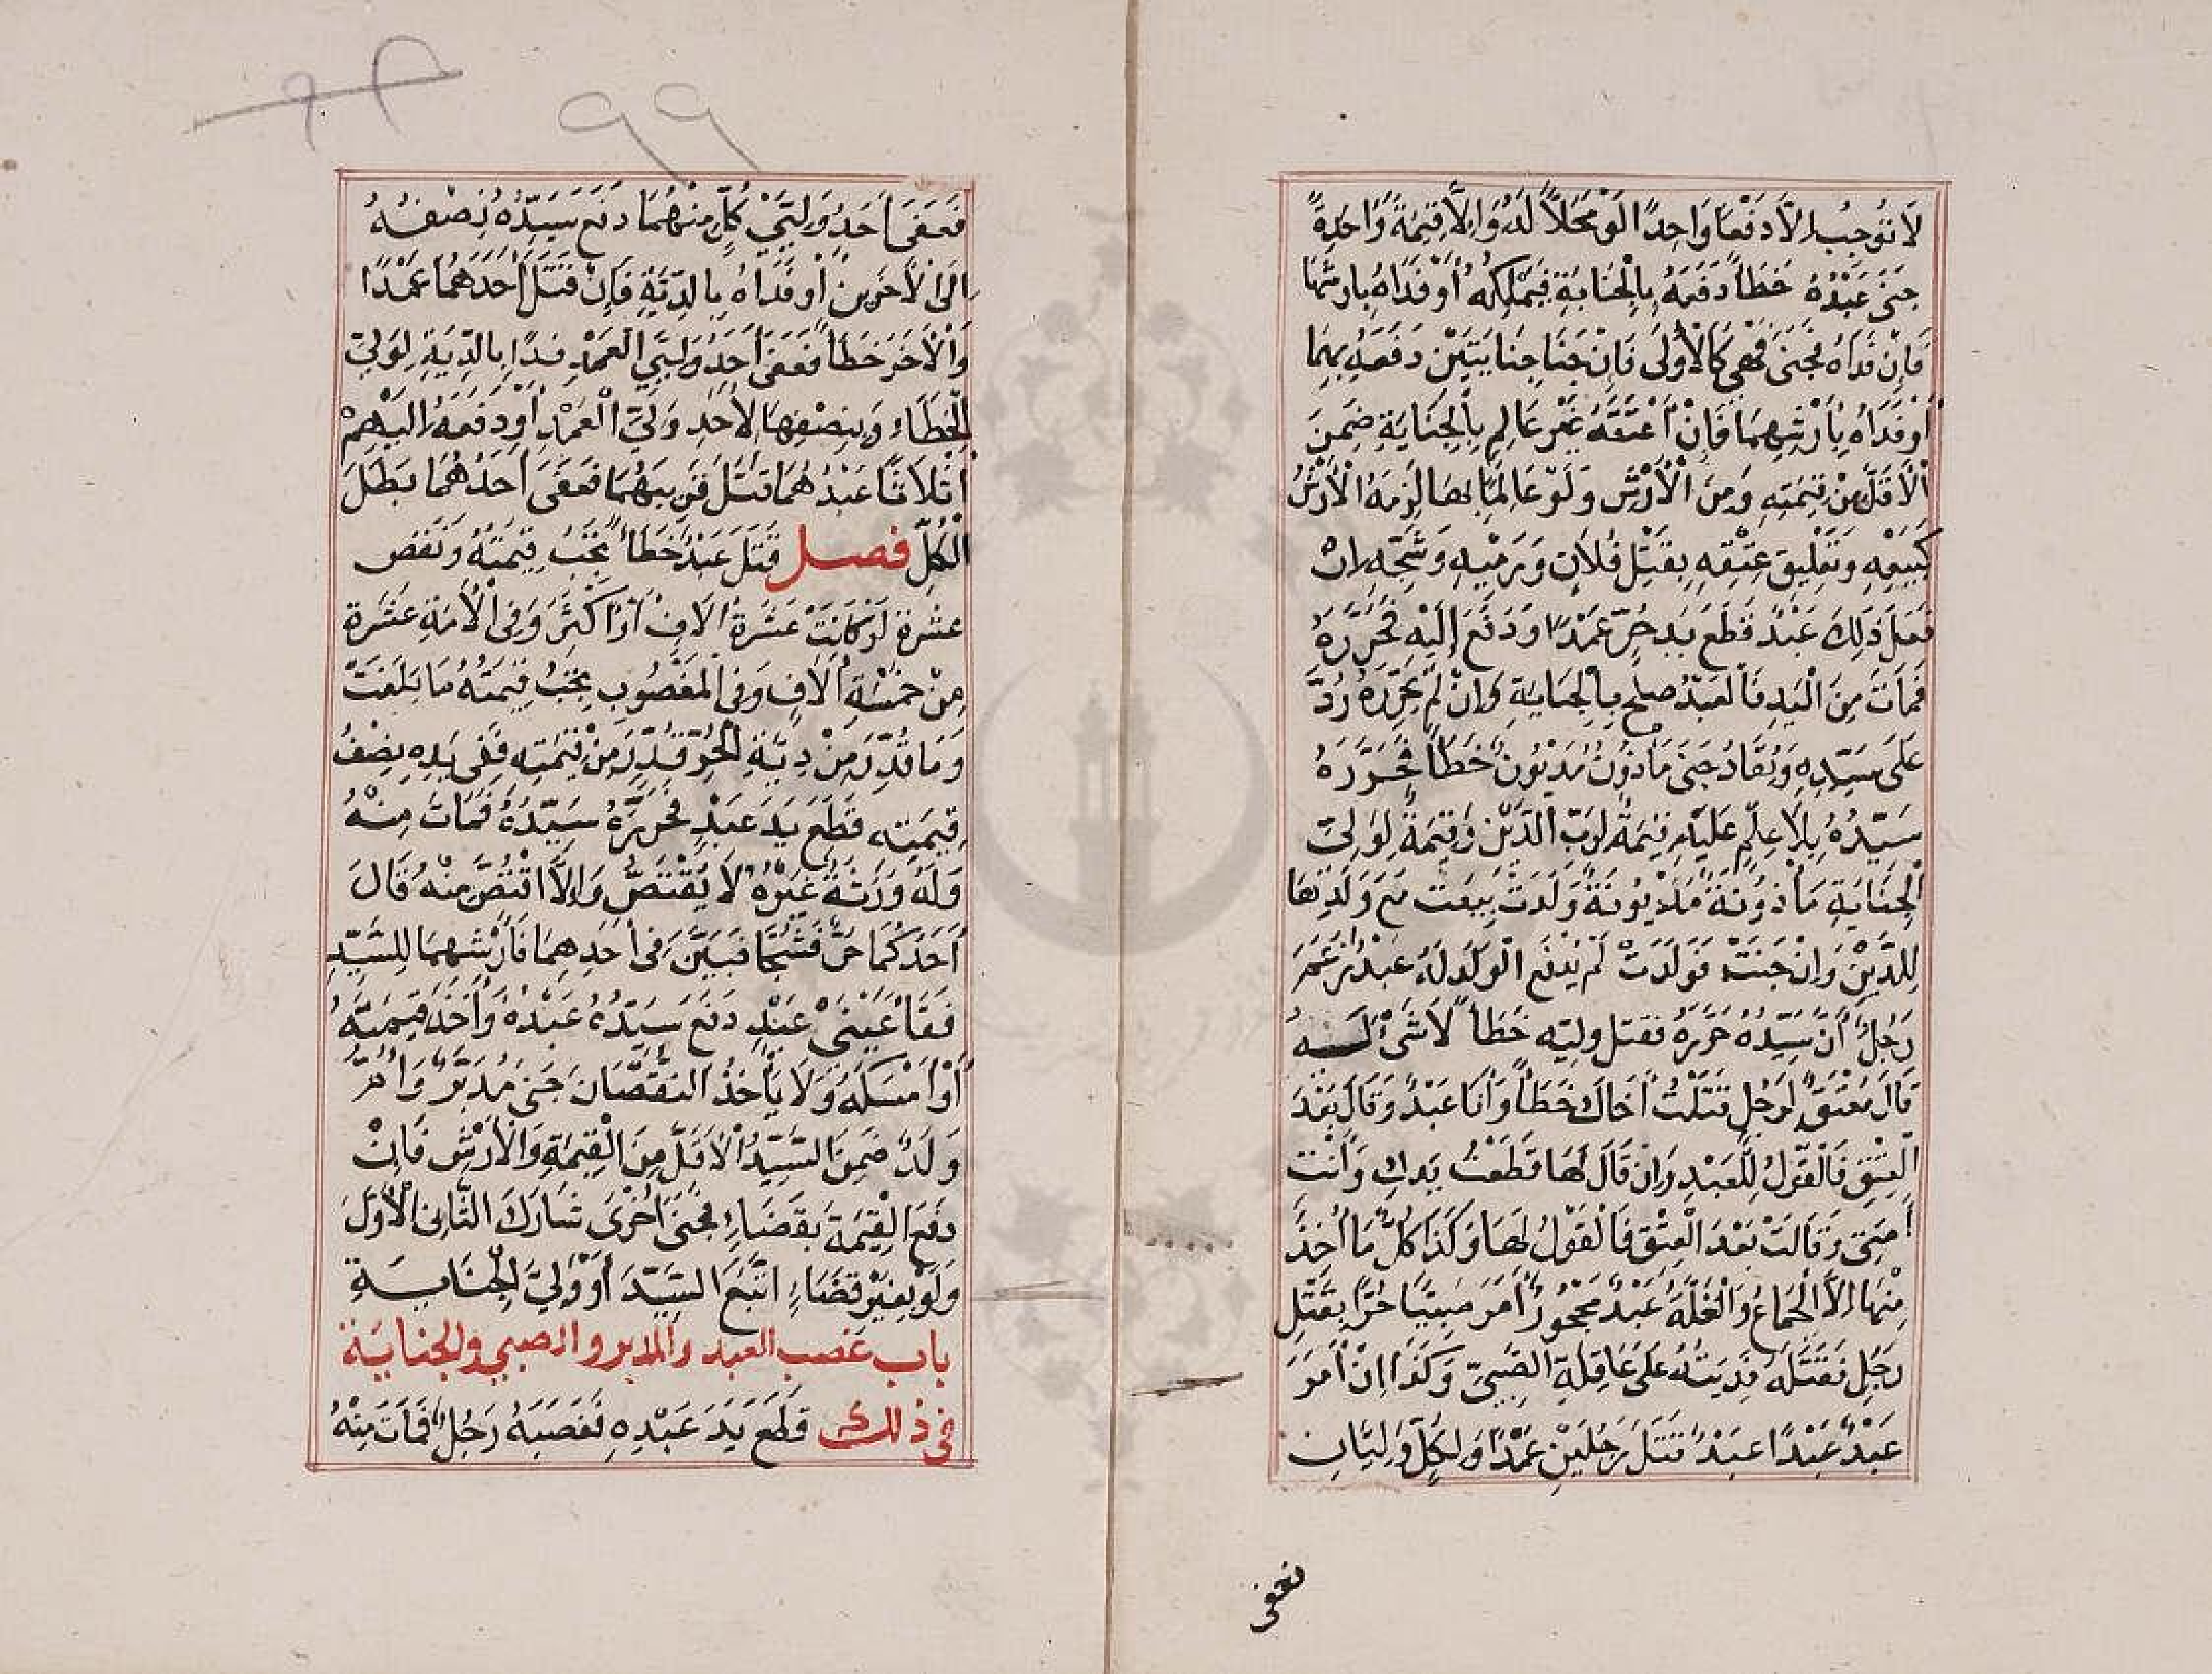 لَا تُوجِبُ اِلَّا دَفْعًا وَاحِدًا لَوْ مَحَلًّا لَهُ وَاِلَّا قِيمَةً وَاحِدَةً
جَنَى عَبْدُهُ خَطَأً دَفَعَهُ بِالْجِنَايَةِ فَيَمْلِكُهُ أَوْ فَدَاهُ بِارْشِهَا
فَاِنْ فَدَاهُ فَجَنَى فَهِيَ كَالْأُولَى فَاِنْ جَنَا جِنَايَتَيْنِ دَفَعَهُ بِهِمَا
أَوْ فَدَاهُ بِأَرْشِهِمَا فَاِنْ أَعْتَقَهُ غَيْرَ عَالِمٍ بِالْجِنَايَةِ ضَمِنَ
الْأَقَلَّ مِنْ قِيمَتِهِ وَمِنَ الْأَرْشِ وَلَوْ عَالِمًا بِهَا لَزِمَهُ الْأَرْشُ
كَبَيْعِهِ وَتَعْلِيقِ عِتْقِهِ بِقَتْلِ فُلَانٍ وَرَمْيِهِ وَشَجِّهِ اِنْ
فَعَلَ ذَلِكَ عَبْدٌ قَطَعَ يَدَ حُرٍّ عَمْدًا وَدَفَعَ إِلَيْهِ فَحَرَّرَهُ
فَمَاتَ مِنَ الْيَدِ فَالْعَبْدُ صُلْحٌ بِالْجِنَايَةِ وَاِنْ لَمْ يُحَرِّرْهُ رُدَّ
عَلَى سَيِّدِهِ وَيُقَادُ جَنَى مَاذُونٌ مَدْيُونٌ خَطَأً فَحَرَّرَهُ
سَيِّدُهُ بِلَا عِلْمٍ عَلَيْهِ قِيمَةٌ لِرَبِّ الدَّيْنِ وَقِيمَةٌ لِوَلِيِّ
الْجِنَايَةِ مَأْذُونَةٌ مَدْيُونَةٌ وَلَدَتْ بِيعَتْ مَعَ وَلَدِهَا
لِلدَّيْنِ وَاِنْ جَنَتْ فَوَلَدَتْ لَمْ يُدْفَعِ الْوَلَدُ لَهُ عَبْدٌ زَعَمَ
رَجُلٌ أَنَّ سَيِّدَهُ حَرَّرَهُ فَقَتَلَ وَلِيَّهُ خَطَأً لَا شَىْءَ لَهُ
قَالَ مُعْتَقٌ لِرَجُلٍ قَتَلْتُ أَخَاكَ خَطَأً وَأَنَا عَبْدٌ وَقَالَ بَعْدَ
الْعِتْقِ فَالْقَوْلُ لِلْعَبْدِ وَاِنْ قَالَ لَهَا قَطَعْتُ يَدَكِ وَأَنْتِ
أَمَتِي وَقَالَتْ بَعْدَ الْعِتْقِ فَالْقَوْلُ لَهَا وَكَذَا كُلُّ مَا أَخَذَ
مِنْهَا اِلَّا الْجِمَاعُ وَالْغَلَّةُ عَبْدٌ مَحْجُورٌ أَمَرَ صَبِيًّا حُرًّا بِقَتْلِ
رَجُلٍ فَقَتَلَهُ فَدِيَتُهُ عَلَى عَاقِلَةِ الصَّبِيِّ وَكَذَا اِنْ أَمَرَ
عَبْدٌ عَبْدًا عَبْدٌ قَتَلَ رَجُلَيْنِ عَمْدًا وَلِكُلٍّ وَلِيَّانِ
فعفى
٩٩
فَعَفَى أَحَدُ وَلِيَّيْ كُلٍّ مِنْهُمَا دَفَعَ سَيِّدُهُ نِصْفَهُ
اِلَى الْآخَرِينَ أَوْ فَدَاهُ بِالدِّيَةِ فَاِنْ قَتَلَ أَحَدَهُمَا عَمْدًا
وَالْآخَرَ خَطَأً فَعَفَى أَحَدُ وَلِيَّيِ الْعَمْدِ فَدَا بِالدِّيَةِ لِوَلِيِّ
الْخَطَاءِ وَبِنِصْفِهَا لِأَحَدِ وَلِيَّيِ الْعَمْدِ أَوْ دَفَعَهُ اِلَيْهِمْ
اَثْلَاثًا عَبْدُهُمَا قَتَلَ قَرِيبَهُمَا فَعَفَى أَحَدُهُمَا بَطَلَ
الْكُلُّ فصل قَتَلَ عَبْدًا خَطَأً تَجِبُ قِيمَتُهُ وَنَقَصَ
عَشْرَةً لَوْ كَانَتْ عَشَرَةُ آلَافٍ أَوْ أَكْثَرَ وَفِي الْأَمَةِ عَشَرَةٌ
مِنْ خَمْسَةِ آلَافٍ وَفِي الْمَغْصُوبِ تَجِبُ قِيمَتُهُ مَا بَلَغَتْ
وَمَا قُدِّرَ مِنْ دِيَةِ الْحُرِّ قُدِّرَ مِنْ قِيمَتِهِ فَفِي يَدِهِ نِصْفُ
قِيمَتِهِ قَطَعَ يَدَ عَبْدٍ فَحَرَّرَهُ سَيِّدُهُ فَمَاتَ مِنْهُ
وَلَهُ وَرَثَةٌ غَيْرُهُ لَا يُقْتَصُّ وَاِلَّا اقْتُصَّ مِنْهُ قَالَ
أَحَدُكُمَا حُرٌّ فَشُجَّا فَبَيَّنَ فِي أَحَدِهِمَا فَأَرْشُهُمَا لِلسَّيِّدِ
فَقَأَ عَيْنَيْ عَبْدٍ دَفَعَ سَيِّدُهُ عَبْدَهُ وَأَخَذَ قِيمَتَهُ
أَوْ أَمْسَكَهُ وَلَا يَأْخُذُ النُّقْصَانَ جَنَى مُدَبَّرٌ وَأُمُّ
وَلَدٍ ضَمِنَ السَّيِّدُ الْأَقَلَّ مِنَ الْقِيمَةِ وَالْأَرْشِ فَاِنْ
دَفَعَ الْقِيمَةَ بِقَضَاءٍ فَجَنَى أُخْرَى شَارَكَ الثَّانِي الْأَوَّلَ
وَلَوْ بِغَيْرِ قَضَاءٍ اتَّبَعَ السَّيِّدَ أَوْ وَلِيَّ الْجِنَايَةِ
باب غصب العبد والمدبر والصبي والجناية
في ذلك قَطَعَ يَدَ عَبْدِهِ فَغَصَبَهُ رَجُلٌ فَمَاتَ مِنْهُ